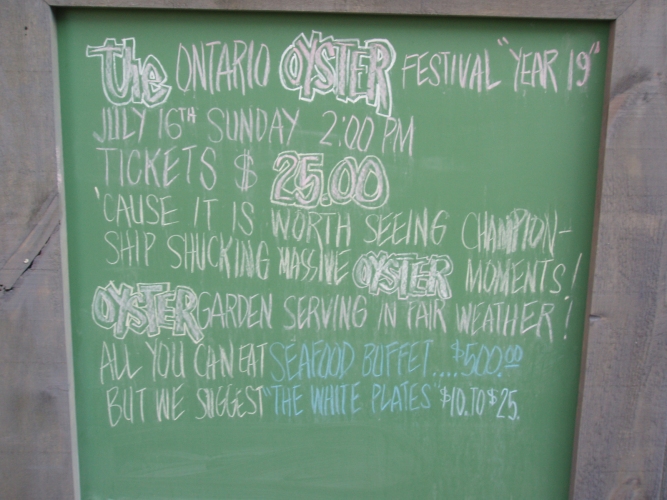 The ONTARIO OYSTER FESTIVAL "YEAR 19"
JULY 16TH SUNDAY 2:00 PM
TICKETS $ 25.00
'CAUSE IT IS WORTH SEEING CHAMPION-
SHIP SHUCKING MASSIVE OYSTER MOMENTS!
OYSTER GARDEN SERVING IN FAIR WEATHER!
ALL YOU CAN EAT SEAFOOD BUFFET....$500.00
BUT WE SUGGEST "THE WHITE PLATES" $10. TO $25.